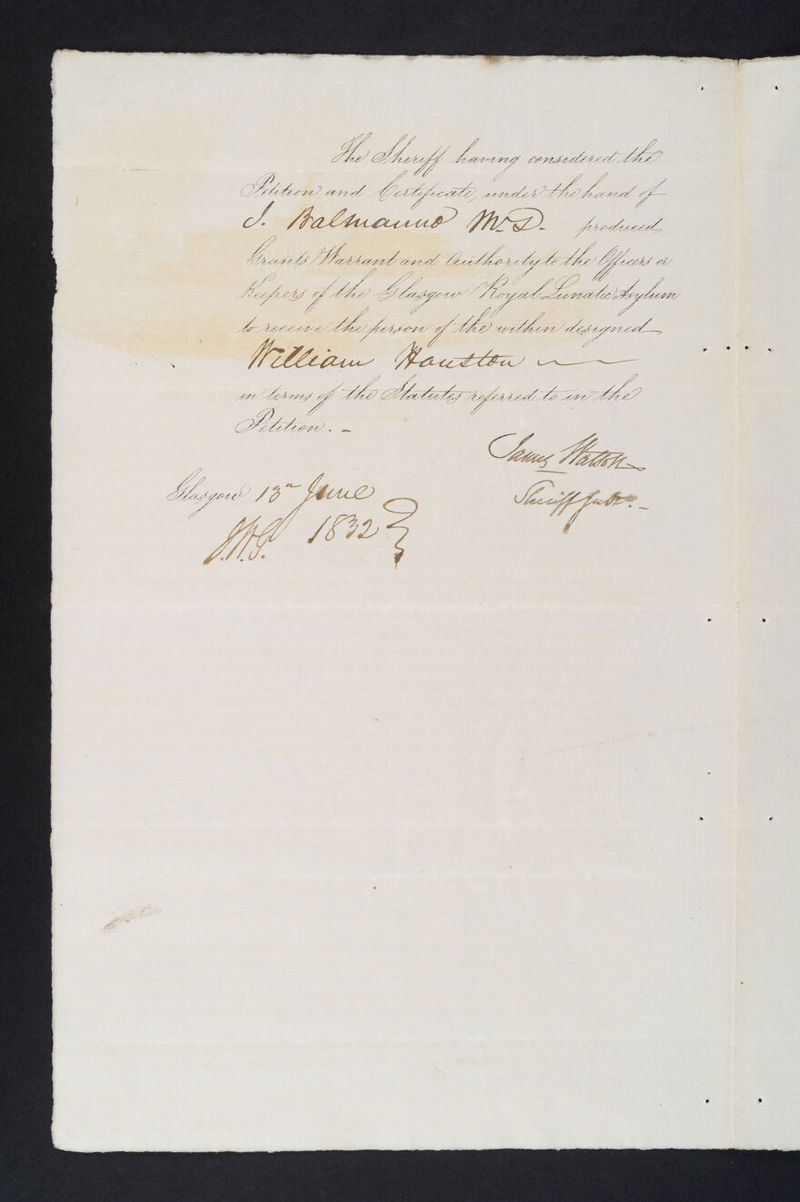 The Sheriff having considered the
Petition and Certificate, under the hand of
J. Balmanno M.D. produced
Grants Warrant and Authority to the Officers or
Keepers of the Glasgow Royal Lunatic Asylum
to receive the person of the within designed
William Houston
in terms of the Statutes referred to in the
Petition. -
James Watson
Sheriff Subte. -
Glasgow 13th June
1832